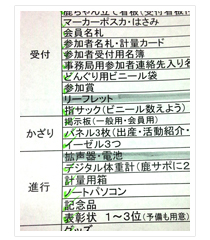 鹿ちゃん立て看板(受付看板
マーカーポスカ・はさみ
会員名札
参加者名札・計量カード
参加者受付用名簿
事務局用参加者連絡先入り名
受付
どんぐり用ビニール袋
参加賞
リーフレット
指サック(ビニール数えよう)
掲示板(一般用・会員用)
かざり
パネル3枚(出産・活動紹介・
イーゼル3つ
拡声器・電池
デジタル体重計(鹿サポに2
進行
計量用箱
ノートパソコン
記念品
表彰状 1~3位(予備も用意)
グッズ